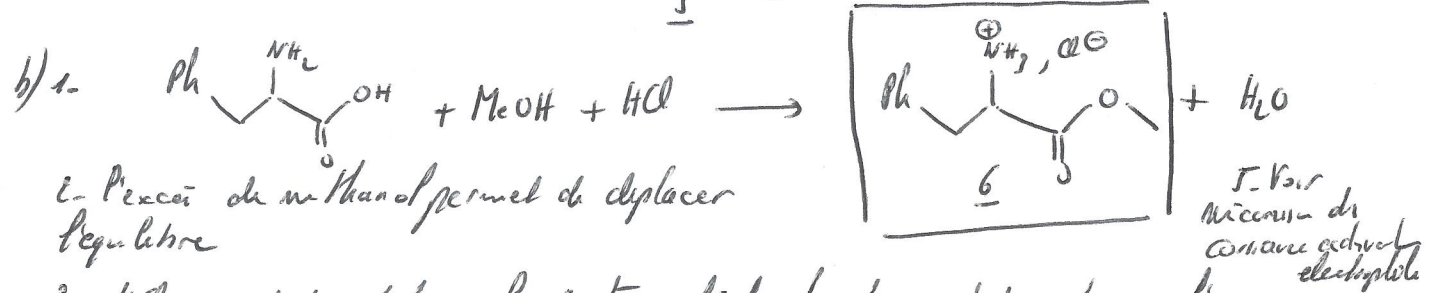 b) 1-
Ph NH2 OH O + MeOH + HCl → Ph ⊕NH3, Cl⊖ O O + H2O
6
2- l'excès de méthanol permet de déplacer
l'équilibre
5- Voir
mécanisme de
électrophile